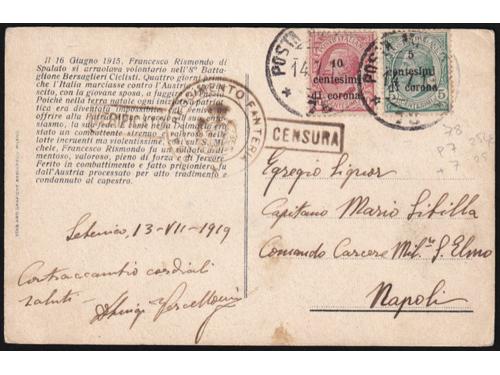 Il 16 Giugno 1915, Francesco Rismondo di
Spalato si arruolava volontario nell'8° Batta-
glione Bersaglieri Ciclisti. Quattro giorni prima
che l'Italia marciasse contro l'Austria
cito, con la giovane sposa, a fuggire
Poichè nella terra natale ogni iniziativa
tica era diventata impossibile, egli
offrire alla
siasmo, la sua fede
stato un combattente
lotte incruenti ma
chele, Francesco Rismondo fu un soldato ardi-
mentoso, valoroso, pieno di forza e di fervore.
Ferito in combattimento e fatto prigioniero fu
dall'Austria processato per alto tradimento e
condannato al capestro.
VERIFICATO
FANTERIA
CENSURA
POSTA
POSTA
10
centesimi
di corona
5
centesimi
di corona
78
P7
+7
Sebenico, 13-VII-1919
Contraccambio cordiali
saluti
Egregio Signor
Capitano Mario Sibilla
Comando Carcere Mil.re S. Elmo
Napoli